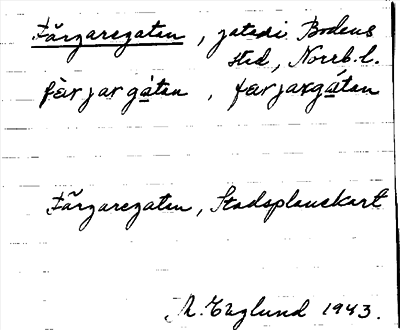 Färgaregatan, gata i Bodens
stad, Norrb. l.
fàrjargátan, farjargátan
Färgaregatan, Stadsplanekart
M. Englund 1943.